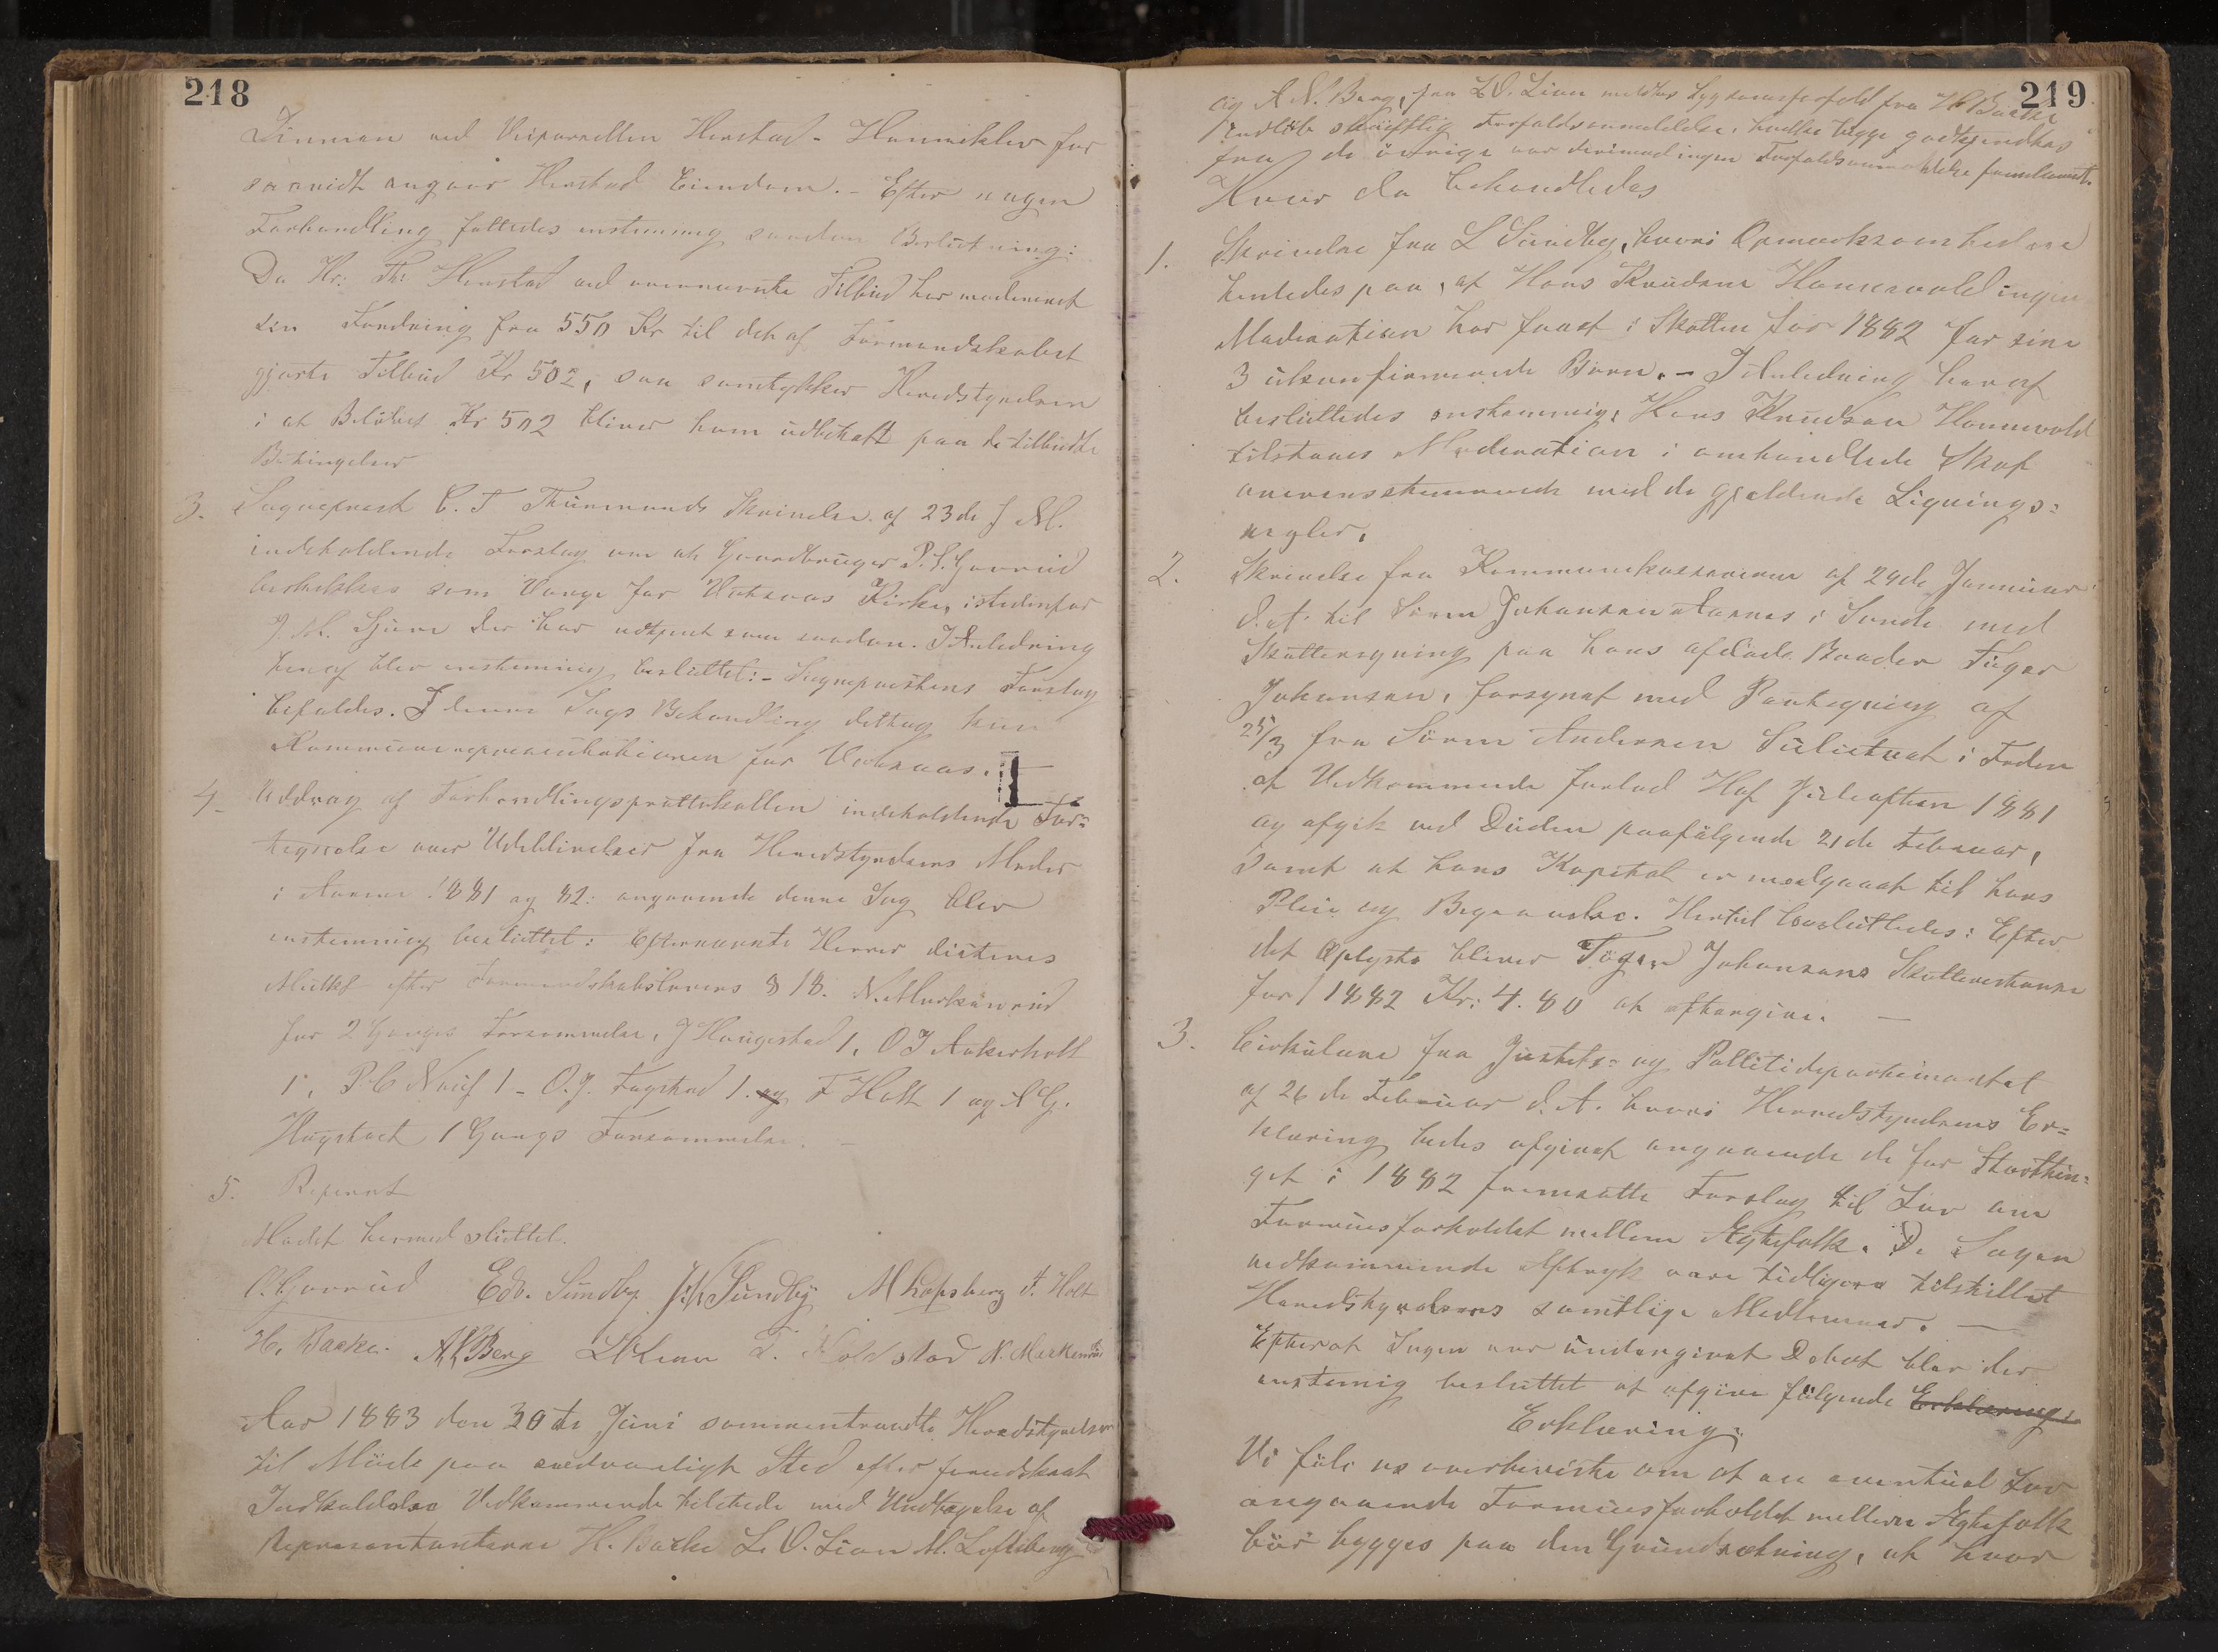 218
Linmen ved Veiparcellen Henstad - Hannekleiv for
saavidt angaar Henstad Eiendom. - Efter nogen
Forhandling fattedes enstemmig saadan Beslutning:
Da Hr: Th: Henstad ved overnævnte Tilbud har modereret
sin Fordring fra 550 Kr til det af Formandskabet
gjorte Tilbud Kr 502, saa samtykker Heredstyrelsen
i at Beløbet Kr 502 bliver ham udbetalt paa de tilbudte
Betingelser
3. Sognepræst C. T Thurmanns Skrivelse af 23de f M.
indeholdende Forslag om at Gaardbruger P. S. Gorrud
beskikkes som Værge for Vatnaas Kirke, istedenfor
der har udtjent som saadan. I Anledning
heraf blev enstemmig besluttet: - Sognepræstens Forslag
bifaldes. I denne Sags Behandling deltog kun
Kommunerepresentationen for Vatnaas.
4. Uddrag af Forhandlingsprottokollen indeholdende For=
tegnelse over Udeblivelser fra Heredstyrelsens Møder
i Aarene 1881 og 82: angaaende denne Sag blev
enstemmig besluttet: Efternævnte Herrer dicteres
Mulkt efter Formandskabslovens § 18. N. Murkerud
for 2 Ganges Forsømmelse, J Haugestad 1, O J Aakerholt
1, P. C 1 - O. J. Fagstad 1. og F Holt 1 og A G.
Hagstad 1 Gangs Forsømmelse. -
5. Referat
Mødet hermed sluttet.
O. Gorrud Edv. Sundby J. N. Sundby M Lofsberg F. Holt
H. Baake. A. N. Berg L O Lian T. Kolstad N. Murkerud
Aar 1883 den 30te Juni sammentraadte Heredstyrelsen
til Møde paa sædvanligt Sted efter forudskeet
Indkaldelse Vedkommende tilstede med Undtagelse af
Representanterne H. Baake L. O. Lian M. Loftsberg
219
og A N. Berg, fra L O. Lian meldtes Sygdomsforfald fra H Baake
indløb skriftlig Forfaldsanmeldelse, hvilke begge godkjendtes
fra de øvrige var derimod ingen Forfaldsanmeldelse fremkommet.
Hvor da behandledes
1. Skrivelse fra L Sundby, hvori Opmærksomhedere
henledes paa, at Hans Knudsen Hannevold ingen
Moderation har faaet i Skatten for 1882 for sine
3 ukonfirmerede Børn. - I Anledning heraf
besluttedes enstemmig: Hans Knudsen Hannevold
tilstaaes Moderation i omhandlede Skat
overensstemmende med de gjeldende Lignings=
regler.
2. Skrivelse fra Kommunekassereren af 24de Januar
d. A. til Søren Johansen Aarnes i Sande med
Skatteregning paa hans afdøde Broder Tøger
Johansen, forsynet med Paategning af
25/3 fra Søren Andersen i Foden
at Vedkommende forlod Hof Juleaften 1881
og afgik ved Døden paafølgende 21de Februar,
samt at hans Kapital er medgaaet til hans
Pleie og Begravelse. Hertil besluttedes: Efter
det oplyste bliver Tøger Johansens Skatterestance
for 1882 Kr: 4.80 at eftergive. -
3. Cirkulære fra Justits= og Pollitidepartementet
af 26de Februar d. A. hvori Herredstyrelsens Er=
klæring bedes afgivet angaaende de for Storthin=
get i 1882 fremsatte Forslag til Lov om
Formuesforholdet mellem Ægtefolk. De Sagen
vedkommende Aftryk vare tidligere tilstillet
Heredstyrelsens samtlige Medlemmer. -
Efterat Sagen var undergivet Debat blev der
enstemig besluttet at afgive følgende Erklæring:
Erklæring:
Vi føle os overbeviste om at en eventuel Lov
angaaende Formuesforholdet mellem Ægtefolk
bør bygges paa den Grundsætning, at hver